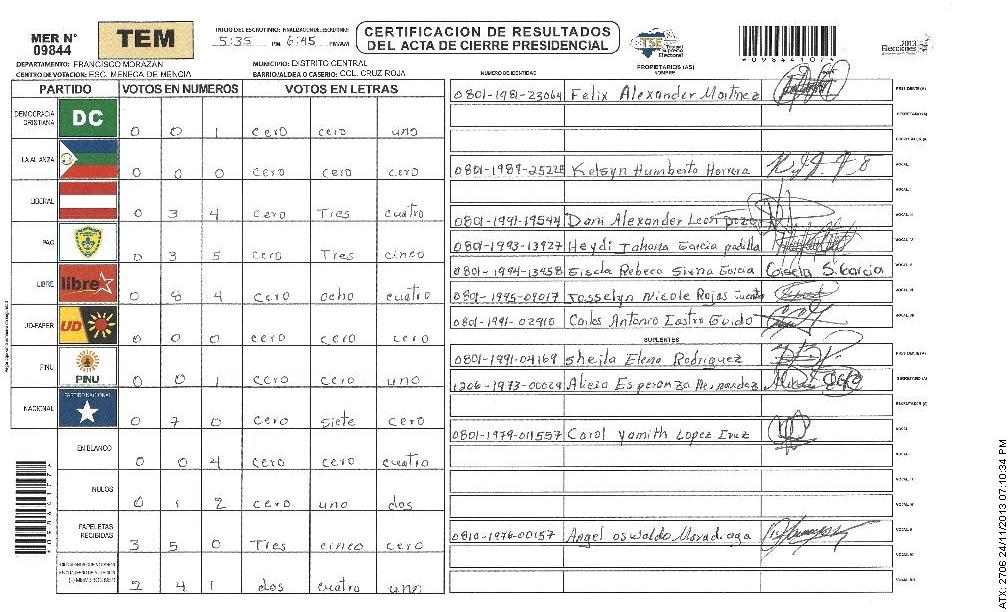 MER N° 09844
TEM
INICIO DEL ESCRUTINIO: FINALIZACION DEL ESCRUTINIO:
5:35 PM 6:45 PM/AM
CERTIFICACION DE RESULTADOS
DEL ACTA DE CIERRE PRESIDENCIAL
TSE Tribunal Supremo Electoral
*09844107*
Elecciones 2013
DEPARTAMENTO: FRANCISCO MORAZAN
MUNICIPIO: DISTRITO CENTRAL
CENTRO DE VOTACION: ESC. MENECA DE MENCIA
BARRIO/ALDEA O CASERIO: COL. CRUZ ROJA
NUMERO DE IDENTIDAD
PROPIETARIOS (AS)
NOMBRE
PARTIDO VOTOS EN NUMEROS VOTOS EN LETRAS
DEMOCRACIA CRISTIANA DC 0 0 1 cero cero uno
LA ALIANZA 0 0 0 cero cero cero
LIBERAL 0 3 4 cero Tres cuatro
PAC 0 3 5 cero Tres cinco
LIBRE libre 0 8 4 cero ocho cuatro
UD-FAPER UD 0 0 0 cero cero cero
PINU PINU 0 0 1 cero cero uno
NACIONAL PARTIDO NACIONAL 0 7 0 cero siete cero
EN BLANCO 0 0 4 cero cero cuatro
NULOS 0 1 2 cero uno dos
PAPELETAS RECIBIDAS 3 5 0 Tres cinco cero
2 4 1 dos cuatro uno
0801-1981-23064 Felix Alexander Martinez PRESIDENTE (A)
SECRETARIO (A)
ESCRUTADOR (A)
0801-1989-25228 Kelsyn Humberto Herrera VOCAL I
VOCAL II
0801-1991-19544 Dani Alexander Leon Pozo VOCAL III
0801-1993-13927 Heydi Johana Garcia padilla VOCAL IV
0801-1994-13458 Gisela Rebeca Sierra Garcia Gisela S. Garcia VOCAL V
0801-1995-09017 Josselyn Nicole Rojas VOCAL VI
0801-1991-02910 Carlos Antonio Castro Guido VOCAL VII
SUPLENTES
0801-1991-04169 Sheila Elena Rodriguez PRESIDENTE (A)
1206-1973-00069 Alicia Esperanza Hernandez SECRETARIO (A)
ESCRUTADOR (A)
0801-1979-011557 Carol Yamith Lopez Cruz VOCAL I
VOCAL II
VOCAL III
VOCAL IV
0810-1976-00157 Angel oswaldo Maradiaga VOCAL V
VOCAL VI
VOCAL VII
ATX: 2706 24/11/2013 07:10:34 PM